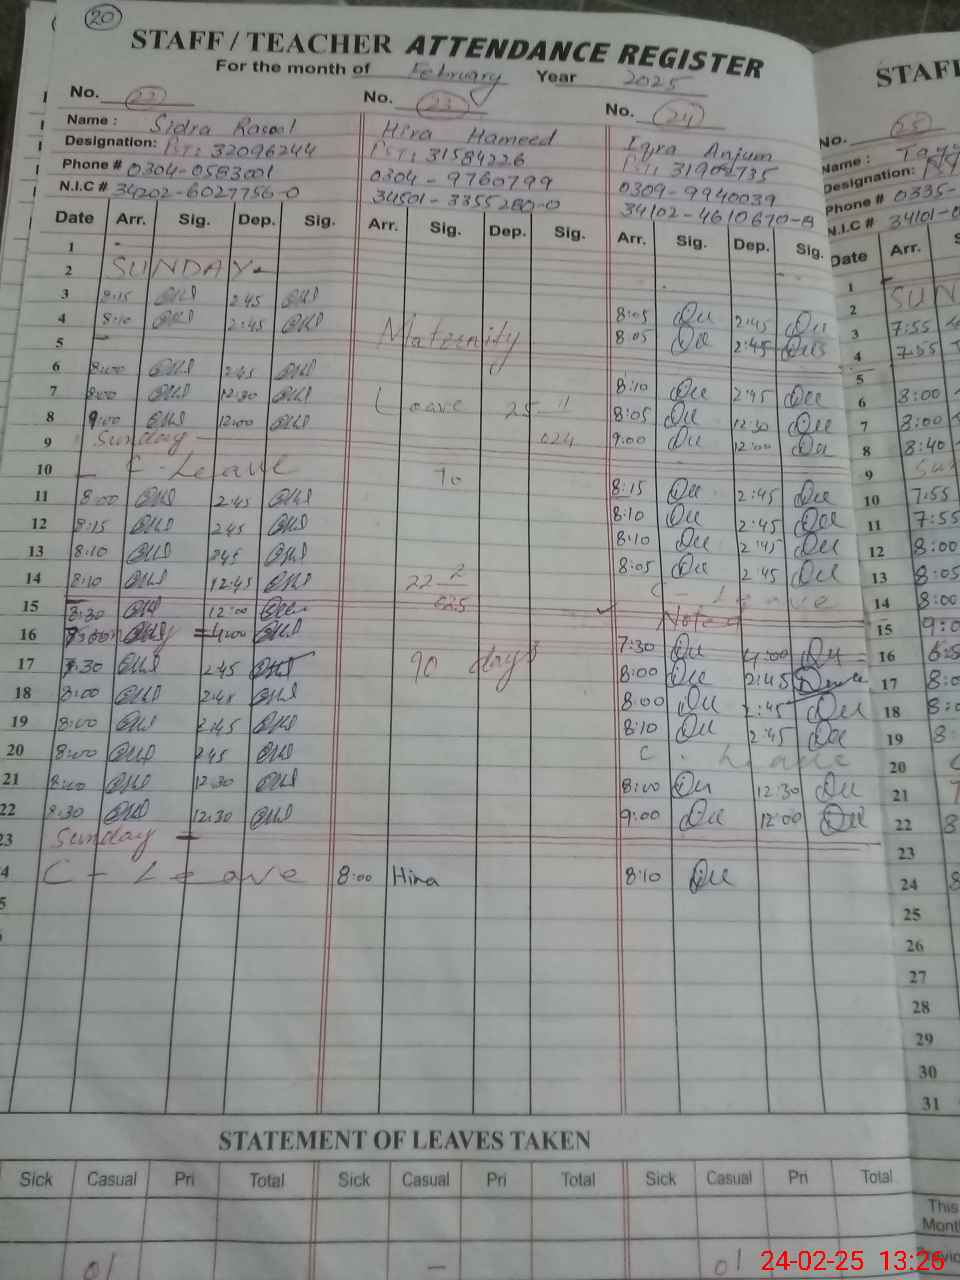 20
STAFF / TEACHER ATTENDANCE REGISTER
For the month of February Year 2025
No. 22 No. 23 No. 24
Name : Sidra Rasool Hira Hameed Iqra Anjum
Designation: PST: 32096244 PST: 31584226 PST: 31904735
Phone # 0304-0583001 0304-9760799 0309-9940039
N.I.C # 34202-6027756-0 34501-3355280-0 34102-4610670-8
Date Arr. Sig. Dep. Sig. Arr. Sig. Dep. Sig. Arr. Sig. Dep. Sig.
1
2 SUNDAY
3 8:15 2:45 8:05 2:45
4 8:10 2:45 Maternity 8:05 2:45
5
6 8:00 2:45 8:10 2:45
7 8:00 12:30 Leave 25 11 8:05 12:30
8 9:00 12:00 024 9:00 12:00
9 Sunday
10 C-Leave To 8:15 2:45
11 8:00 2:45 8:10 2:45
12 8:15 2:45 8:10 2:45
13 8:10 2:45 8:05 2:45
14 8:10 12:45 22 2 C-Leave
15 8:30 12:00 025 Noted
16 Sunday 4:00 7:30 4:00
17 7:30 2:45 90 days 8:00 2:45
18 8:00 2:45 8:00 2:45
19 8:00 2:45 8:10 2:45
20 8:00 2:45 C-Leave
21 8:00 12:30 8:00 12:30
22 8:30 12:30 9:00 12:00
23 Sunday
4 C-Leave 8:00 Hira 8:10
5
STATEMENT OF LEAVES TAKEN
Sick Casual Pri Total Sick Casual Pri Total Sick Casual Pri Total
01 - 01
STAF
No. 25
Name : Tay
Designation: PS
Phone # 0335-
N.I.C # 34101-0
Date Arr. S
1
2 SUN
3 7:55
4 7:55
5
6 8:00
7 8:00
8 8:40
9 Su
10 7:55
11 7:55
12 8:00
13 8:05
14 8:00
15 9:0
16 6:5
17 8:0
18 8:0
19 8:
20 C
21
22 8
23
24 8
25
26
27
28
29
30
31
This
Mont
24-02-25 13:26